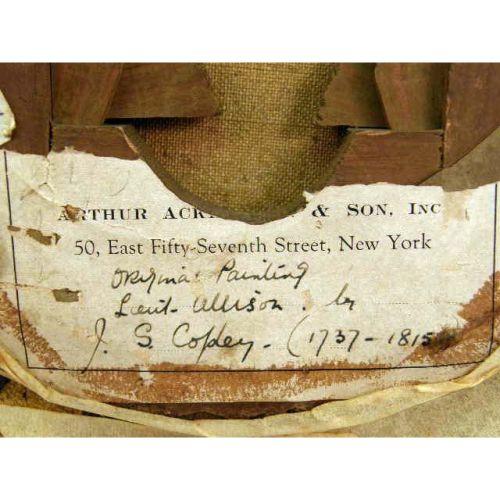 ARTHUR ACK & SON, INC
50, East Fifty-Seventh Street, New York
Original Painting
Lieut. Allison. by
J. S. Copley. (1737-1815)